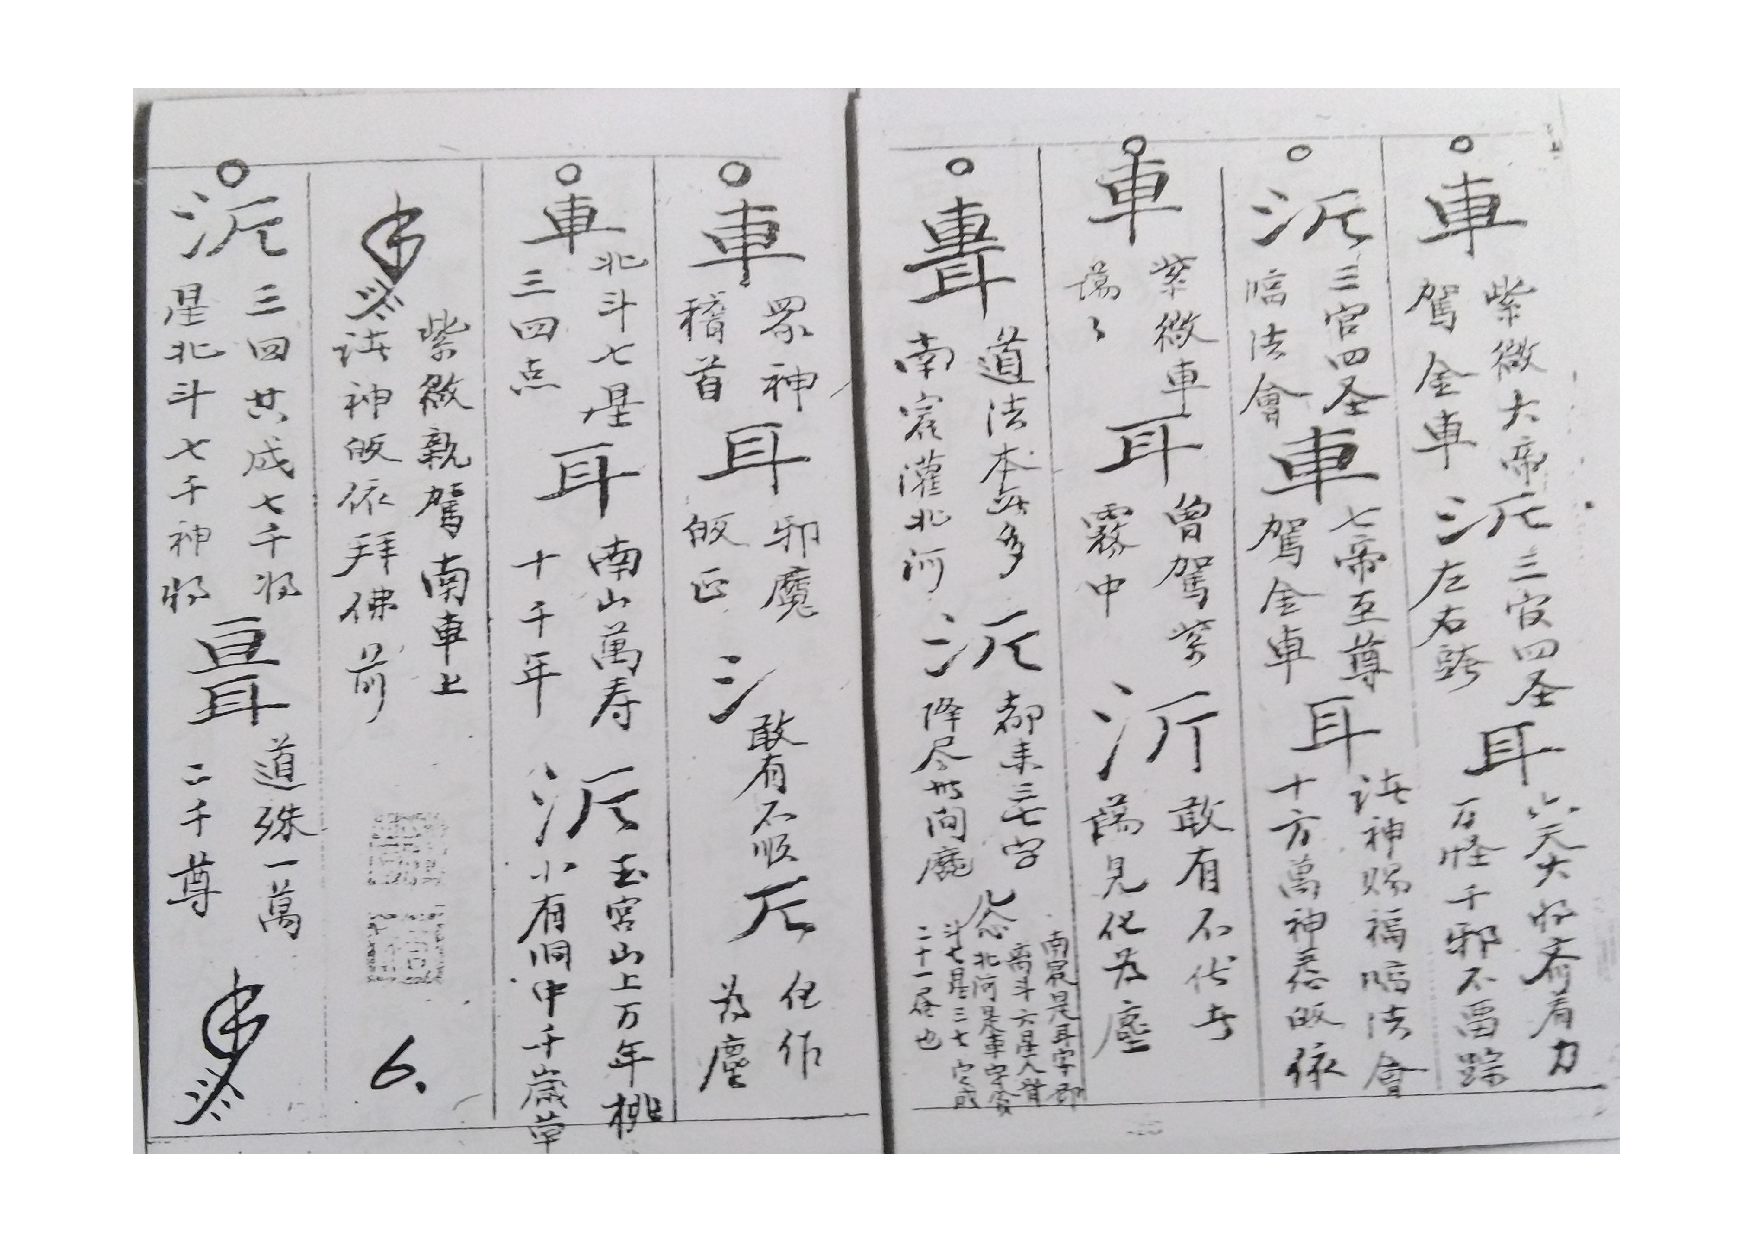 車
紫微大帝
駕金車
沅
三官四圣
左右跨
耳
六天大将齊着力
万怪千邪不畱踪
沅
三官四圣
臨法會
車
七帝至尊
駕金車
耳
诸神赐福臨法會
十方萬神悉皈依
車
紫微車
耳
曾駕紫
霧中
敢有不伏者
見化为塵
車耳
道法本無多
南宸灌北河
沅
都来三七字
降尽世间魔
南宸是耳字即
南斗六星
北河是車字
斗七星三七
二十一
也
車
眾神
稽首
耳
邪魔
皈正
氵
敢有不顺
元
化作
为塵
車
北斗七星
三四点
耳
南山萬寿
十千年
沅
玉宮山上万年桃
小有洞中千歲草
紫微親駕南車上
诸神皈依拜佛前
6.
沅
三四共成七千将
星北斗七千神将
道殊一萬
二千尊